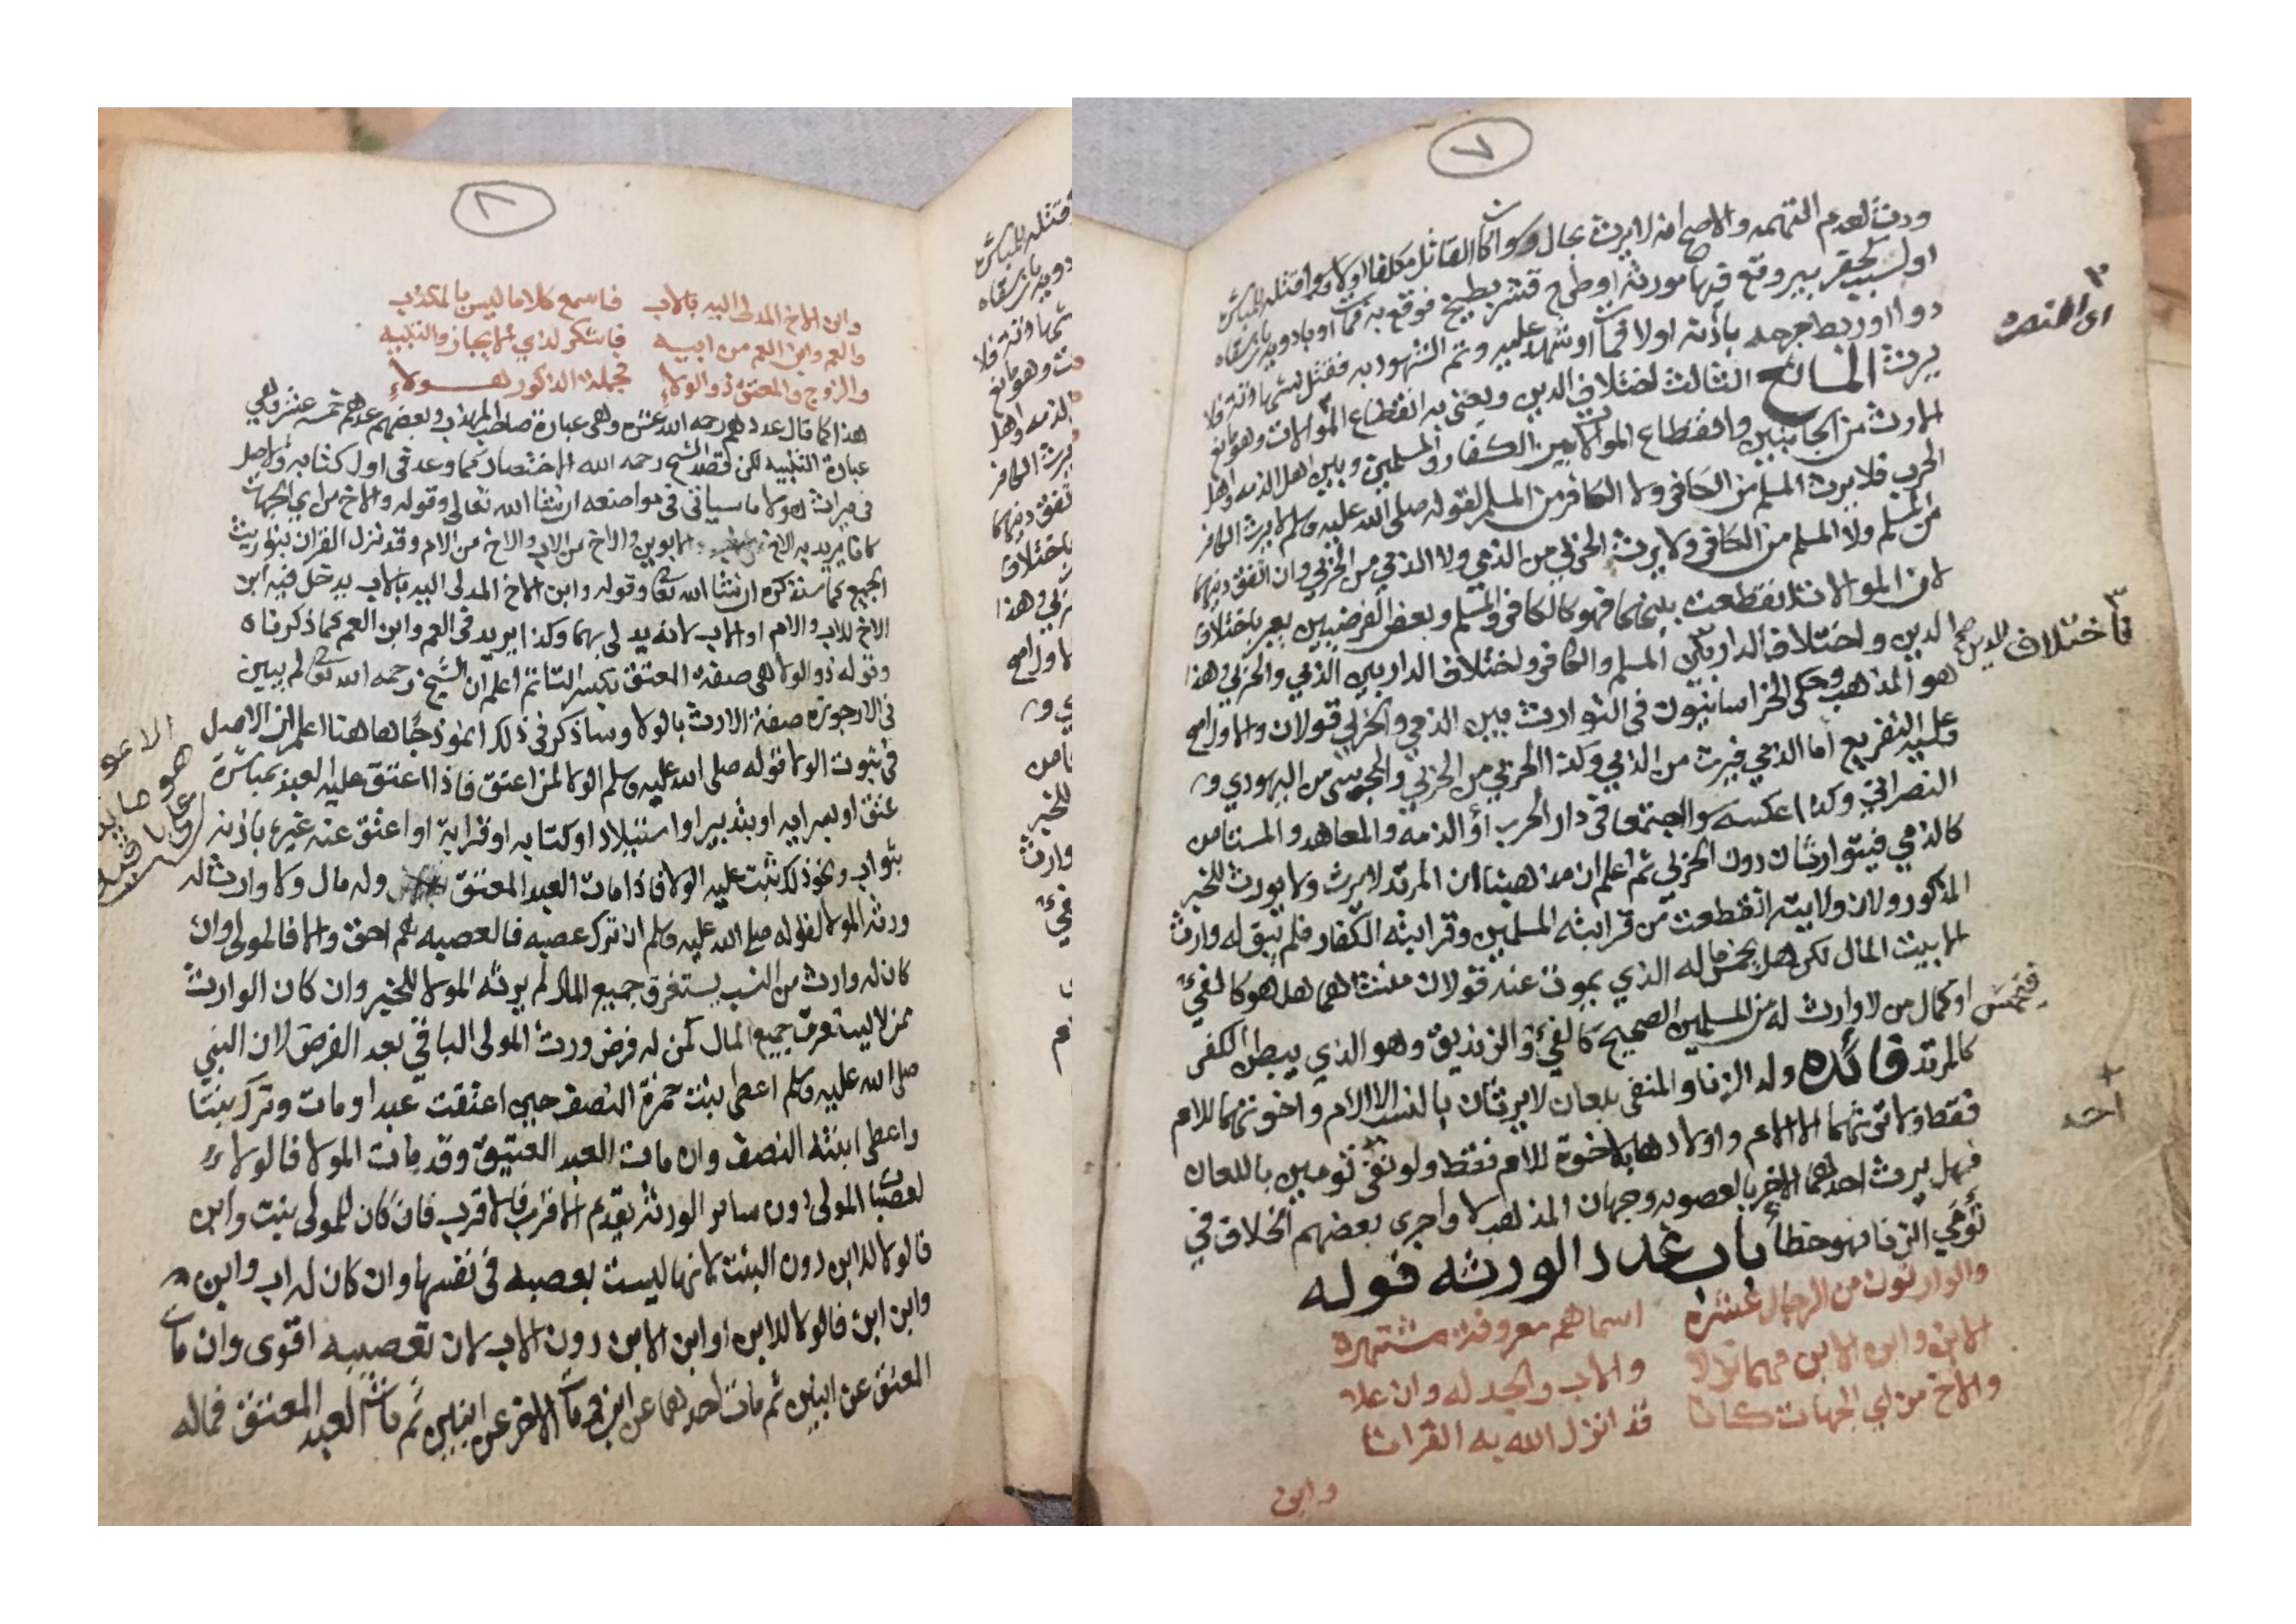 ٧
ورث لعدم التهمه والاصح انه لا يرث بحال وسوا كان القاتل مكلفا اولا وسوا قتله بالمباشره
او لسبب كحفر بير وقع فيها مورثه او طرح قشر بطيخ فوقع به فمات او بادويه بان سقاه
دوا او ربط جرحه باذنه اولا فمات او شهد عليه وتم الشهود به فقتل بشهادته فلا
يرث المانع الثالث اختلاف الدين ويعنى به انقطاع الموالات وهو مانع
للارث من الجانبين وانقطاع الموالات بين الكفار والمسلمين وبين اهل الذمه واهل
الحرب فلا يرث المسلم من الكافر ولا الكافر من المسلم لقوله صلى الله عليه وسلم لا يرث الكافر
من المسلم ولا المسلم من الكافر ولا يرث الحربي من الذمي ولا الذمي من الحربي وان اتفق دينهما
لان الموالات انقطعت بينهما فهو كالكافر والمسلم وبعض الفرضيين يعبر باختلاف
الدين واختلاف الدارين المسلم والكافر واختلاف الدارين الذمي والحربي وهذا
هو المذهب وحكى الخراسانيون في التوارث بين الذمي والحربي قولان والاول اصح
عليه التفريع اما الذمي فيرث من الذمي وكذا الحربي من الحربي والمجوسي من اليهودي و
النصراني وكذا عكسه سوا اجتمعا في دار الحرب او الذمه والمعاهد والمستامن
كالذمي فيتوارثان دون الحربي ثم اعلم ان مذهبنا ان المرتد لا يرث ولا يورث للخبر
المذكور ولان ولايته انقطعت من قرابته المسلمين وقرابته الكفار فلم يبق له وارث
الا بيت المال لكن هل يخمس ماله الذي يموت عنه قولان مبنيان هل هو كالفيء
فيخمس او كمال من لا وارث له من المسلمين الصحيح كالفيء والزنديق وهو الذي يبطن الكفر
كالمرتد فائده ولد الزنا والمنفي بلعان لا يرثان بالنسب الا الام واخوتهما للام
فقط ولا يرثهما الا الام واولادها بالاخوة للام فقط ولو نفى تومين باللعان
فهل يرث احدهما الاخر بالعصوبه وجهان المذهب لا واجرى بعضهم الخلاف في
تومي الزنا فهو خطا باب عدد الورثه قوله
والوارثون من الرجال عشره اسماهم معروفة مشتهره
الابن وابن الابن مهما نزلا والاب والجد له وان علا
والاخ من اي الجهات كانا قد انزل الله به القرانا
وابن
فاختلاف الدين صح
احد
٨
وابن الاخ المدلى اليه بالاب فاسمع كلاما ليس بالمكذب
والعم وابن العم من ابيه فاشكر لذي الايجاز والتنبيه
والزوج والمعتق ذو الولاء فجملة الذكور هولاء
هذا كما قال عددهم رحمه الله عشره وهي عبارة صاحب المهذب وبعضهم عدهم خمسه عشر وهي
عبارة التنبيه لكن قصد الشيخ رحمه الله الاختصار كما وعد في اول كتابه والاصل
في ميراث هولا ما سياتي في مواضعه ان شا الله تعالى وقوله والاخ من اي الجهات
كانا يريد به الاخ من الابوين والاخ من الاب والاخ من الام وقد نزل القران بتوريث
الجميع كما ستذكره ان شا الله تعالى وقوله وابن الاخ المدلى اليه بالاب يدخل فيه ابن
الاخ للاب والام او الاب لانه يدلي بهما وكذا يريد في العم وابن العم كما ذكرناه
وقوله ذو الولا هي صفة المعتق بكسر التا ثم اعلم ان الشيخ رحمه الله تعالى لم يبين
في الارجوزه صفة الارث بالولا وساذكر في ذلك انموذجا هاهنا اعلم ان الاصل
في ثبوت الولا قوله صلى الله عليه وسلم الولا لمن اعتق فاذا اعتق عليه العبد بمباشرة
عتق او بسرايه او بتدبير او استيلاد او كتابه او قرابة او اعتق عنه غيره باذنه
بثواب ونحو ذلك ثبت عليه الولا فاذا مات العبد المعتق وله مال ولا وارث له
ورثه المولا لقوله صلى الله عليه وسلم ان ترك عصبه فالعصبه احق والا فالمولى وان
كان له وارث من النسب يستغرق جميع المال لم يرثه المولا للخبر وان كان الوارث
ممن لا يستغرق جميع المال كمن له فرض ورث المولى الباقي بعد الفرض لان النبي
صلى الله عليه وسلم اعطى بنت حمزة النصف حين اعتقت عبدا ومات وترك بنتا
واعطى ابنته النصف وان مات العبد العتيق وقد مات المولا فالولاء
لعصبات المولى دون ساير الورثه يقدم الاقرب فالاقرب فان كان للمولى بنت وابن
فالولا للابن دون البنت لانها ليست بعصبه في نفسها وان كان له اب وابن
وابن ابن فالولا للابن او ابن الابن دون الاب لان تعصيبه اقوى وان مات
المعتق عن ابنين ثم مات احدهما عن ابن ومات الاخر عن ابنين ثم مات العبد المعتق فماله